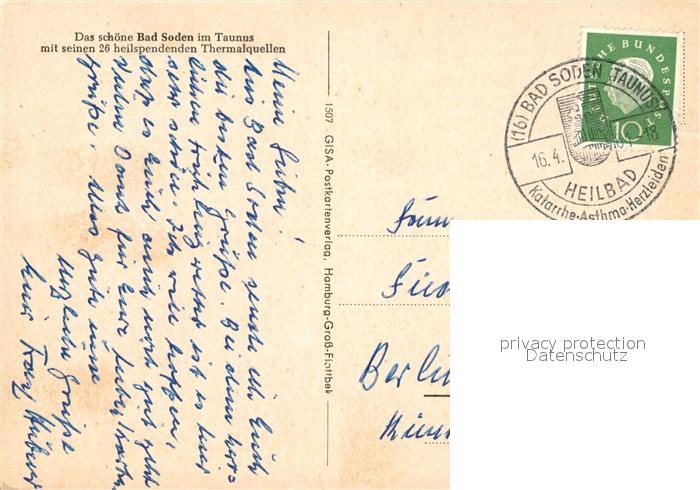 Das schöne Bad Soden im Taunus
mit seinen 26 heilspendenden Thermalquellen
Meine Lieben!
Aus Bad Soden sende ich Euch
die besten Grüße. Bei dem herr-
lichen Frühlingswetter ist es hier
sehr schön. Ich will hoffen,
daß es Euch auch noch gut geht
Vielen Dank für Eure lieben
Grüße. Alles Gute und
Herzliche Grüße
Euer Franz
1507 GISA-Postkartenverlag, Hamburg-Groß-Flottbek
DEUTSCHE BUNDESPOST
10
(16) BAD SODEN (TAUNUS)
16.4.
18
HEILBAD
Katarrhe-Asthma-Herzleiden
Fam
Berlin
privacy protection
Datenschutz